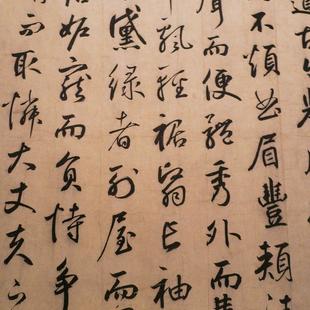 道古
不煩曲眉豐頰清
聲而便體秀外而惠
飄輕裾翳長袖
黛綠者列屋而
妬寵而負恃争
而取憐大丈夫之